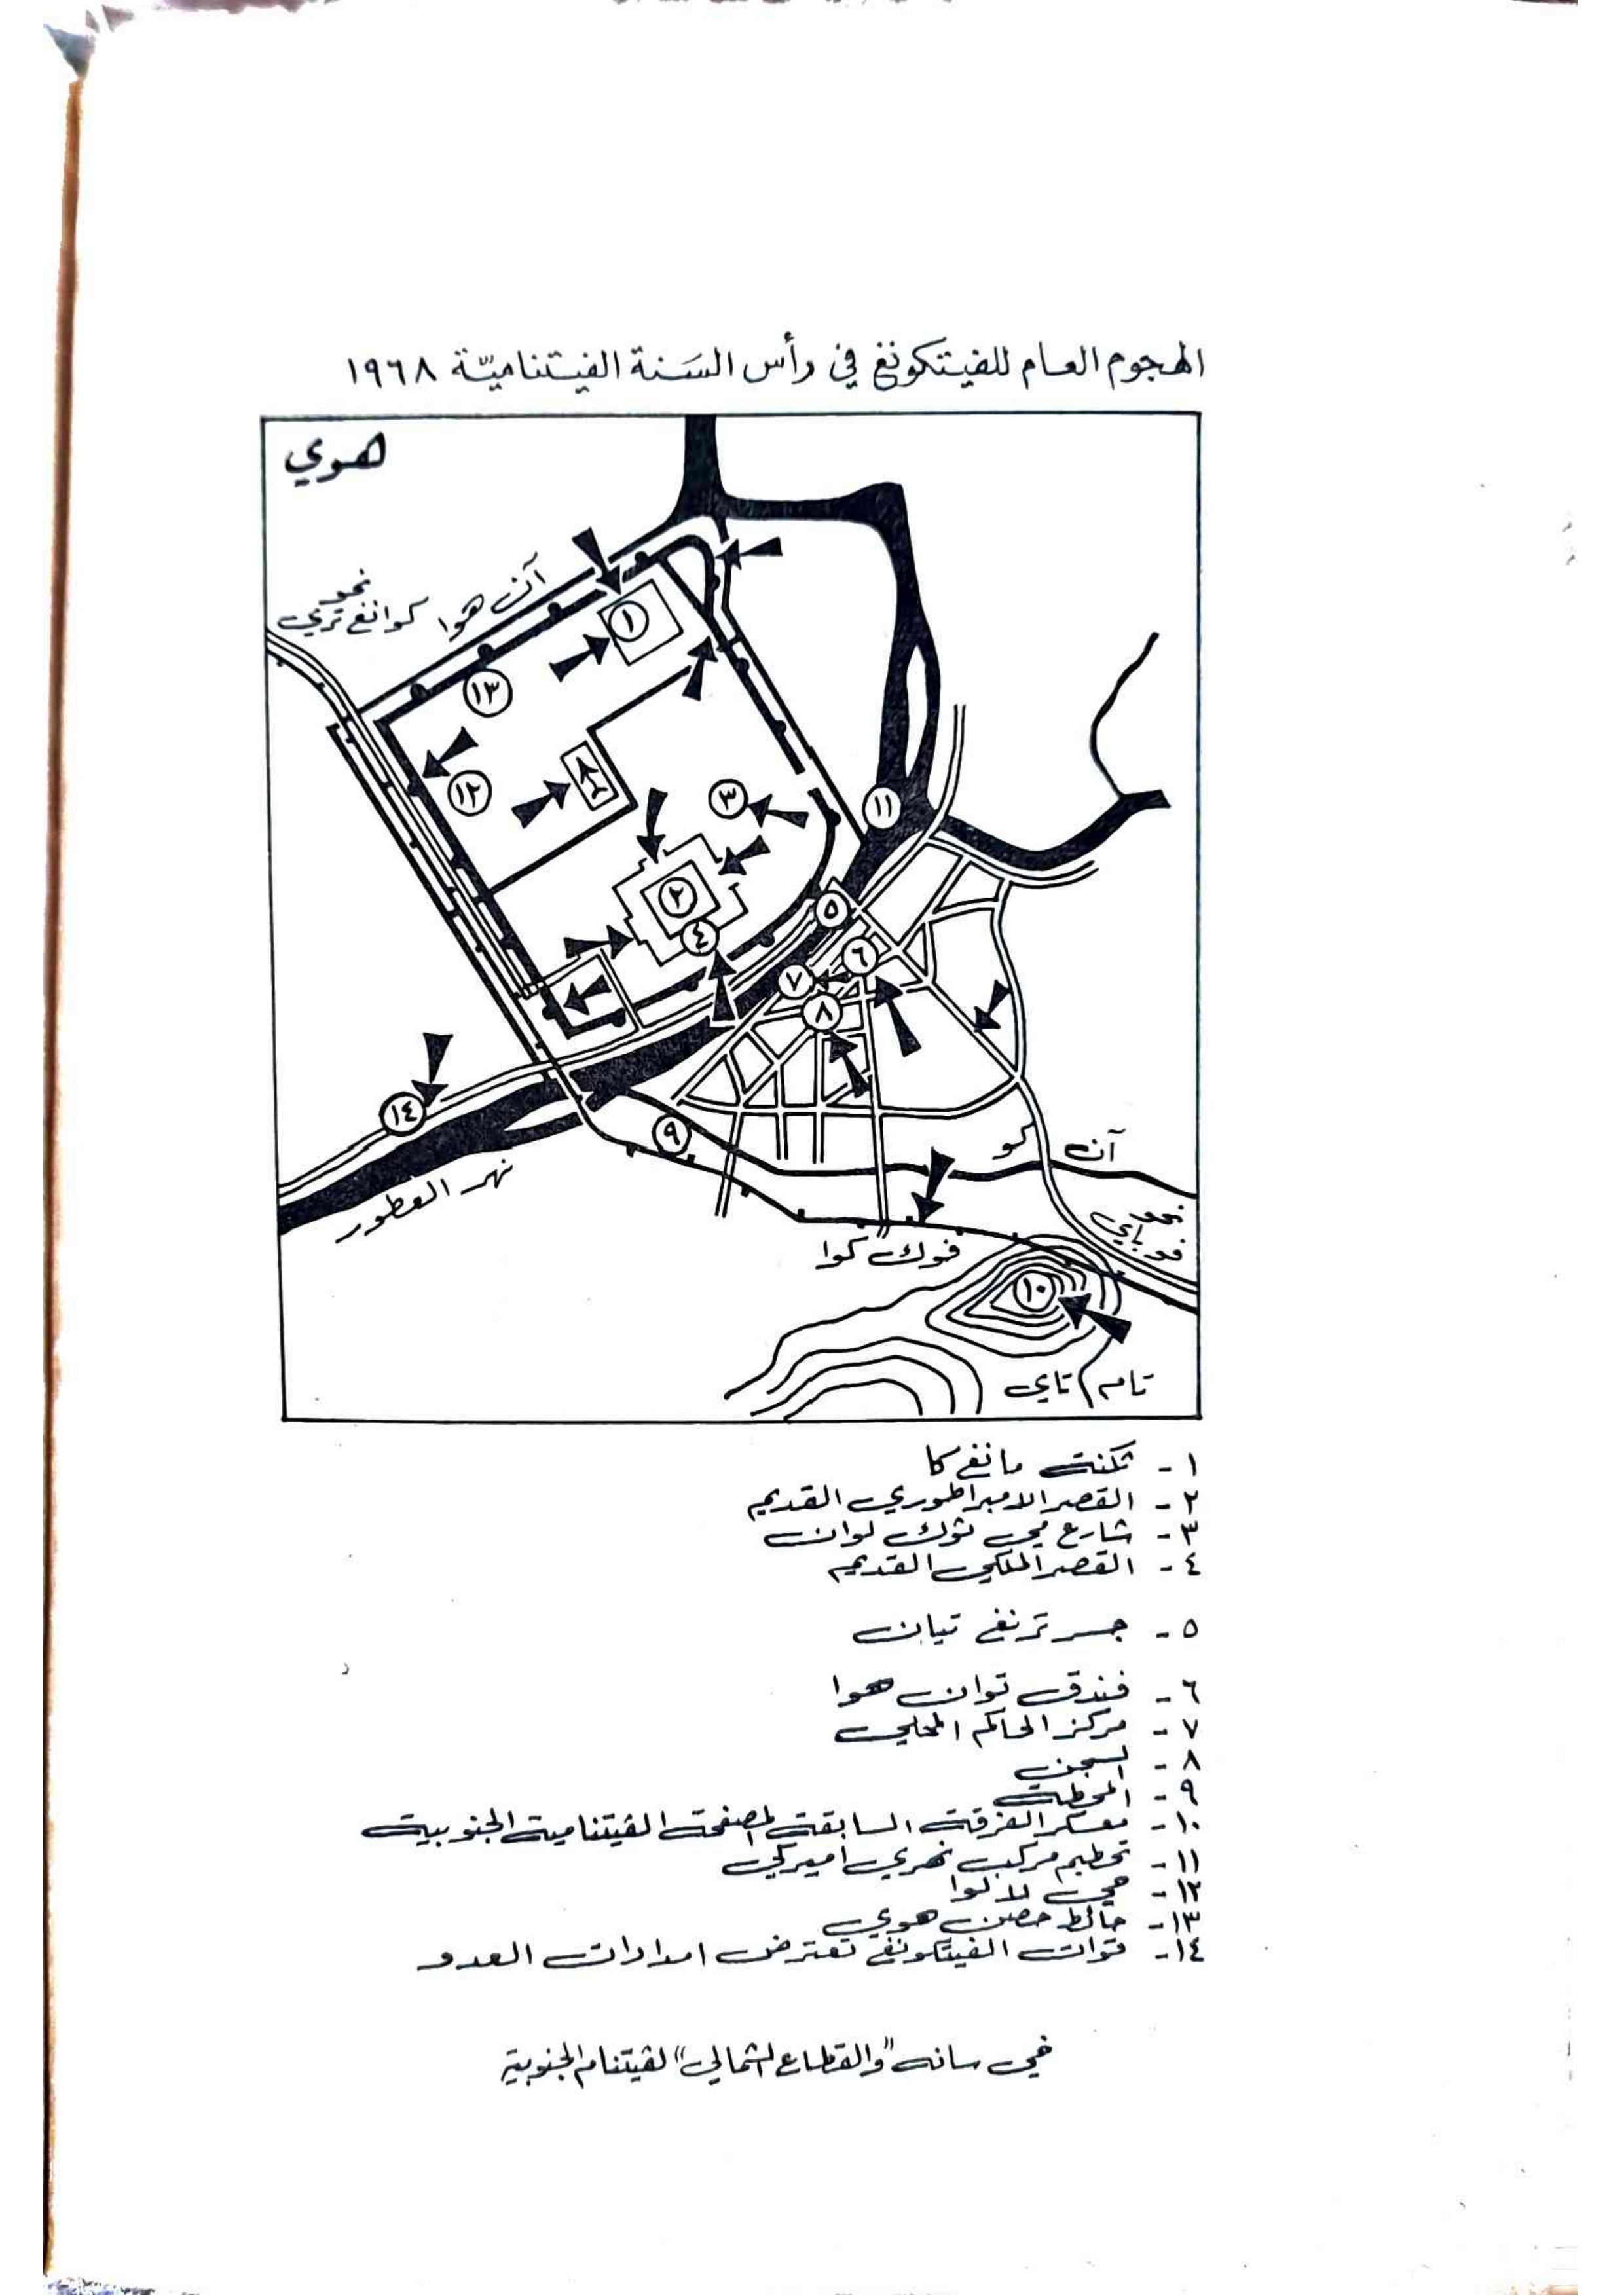 الهجوم العام للفيتكونغ في رأس السَنة الفيتناميّة ١٩٦٨
هوي
نحو
كوانغ تري
آن هوا
١
١٣
١٢
٣
١١
٢
٤
٥
٦
٧
٨
١٤
٩
آن كو
نهر العطور
نحو
فو باي
فوك كوا
١٠
تام تاي
١ - ثكنة مانغ كا
٢ - القصر الامبراطوري القديم
٣ - شارع مي ثوك لوان
٤ - القصر الملكي القديم
٥ - جسر ترنغ تيان
٦ - فندق توان هوا
٧ - مركز الحاكم المحلي
٨ - السجن
٩ - المحطة
١٠ - معسكر الفرقة السابقة المصفحة الفيتنامية الجنوبية
١١ - تحطيم مركب نهري اميركي
١٢ - حي تلا لوا
١٣ - حائط حصن هوي
١٤ - قوات الفيتكونغ تعترض امدادات العدو
في سانه "والقطاع الشمالي" لفيتنام الجنوبية